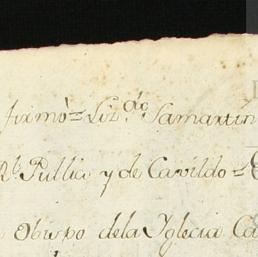 firmò = Liz.do Samartin
Rl. Publia y de Cavildo =
Obispo dela Iglecia Ca